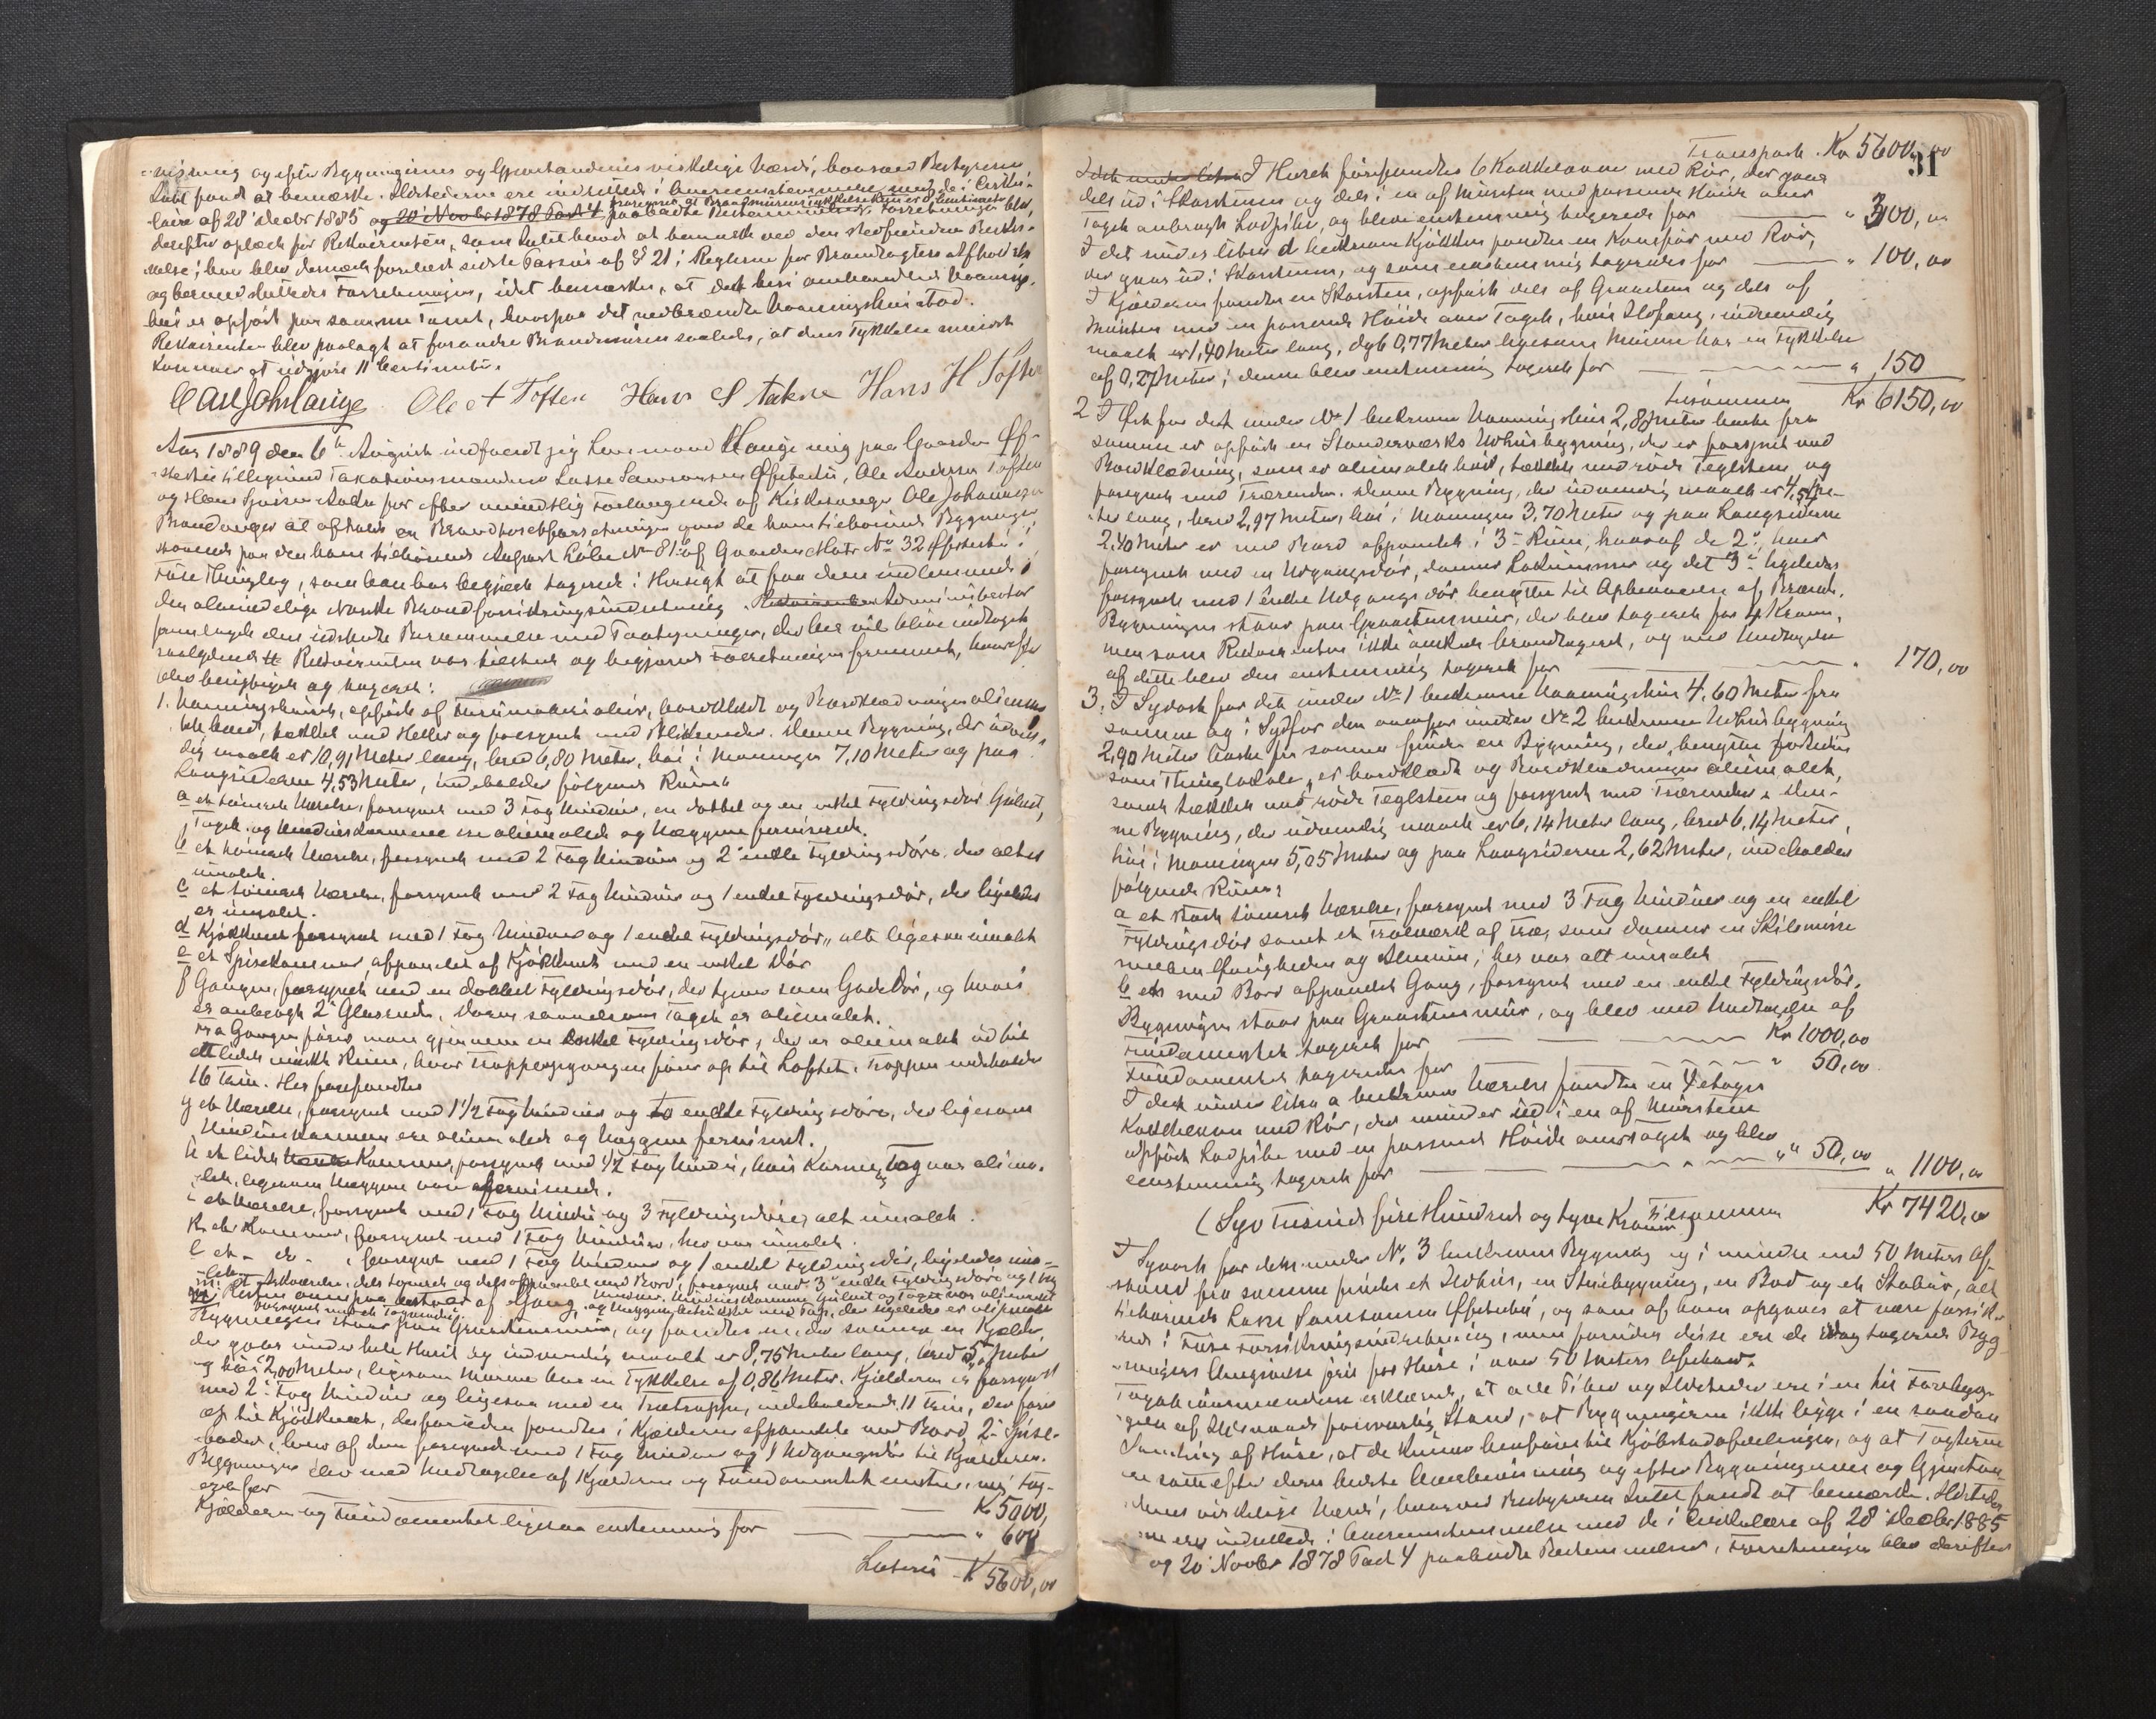 -nisning og efter Bygningernes og Gjenstandenes virkelige Værdi, hvorved Bestyreren
Intet fandt at bemærke. Ildstederne ere indrettede i Overensstemmelse med de i Cirku-
laire af 28 Decbr 1885 og 20 Novbr 1878 Post 4 paabudte Bestemmelser. Forretningen blev
derefter oplæst for Rekvirenten, som Intet havde at bemærke ved den stedfundne Beskri-
velse; han blev dernæst forelæst sidste Passus af § 21 i Reglerne for Brandtagters Afholdelse
og hermed sluttedes Forretningen, idet bemærkes, at det heri omhandlede Vaanings-
hus er opført paa samme Tomt, hvorpaa det nedbrændte Vaaningshus stod.
Rekvirenten blev paalagt at forandre Brandmuren saaledes, at dens Tykkelse
kommer at udgjøre 11 Centimeter.
Carl Joh Lange Ole A Toften Hans S Hans H Toften
Aar 1889 den 6te August indfandt sig Lensmand Hauge mig paa Gaarden Øf-
stebø i Følge med Taxationsmændene Lasse Samsonsen Øfstebø, Ole Andersen Toften
og Hans for efter mundtlig Forlangende af Kirkesanger Ole Johannesen
Brandanger at afholde en Brandtaxtforretning over de ham tilhørende Bygninger
staaende paa den ham tilhørende Løbe No 81 af Gaarden Matr No 32 Øfstebø i
Thinglag, som han har begjært taxerede i Hensigt at faa dem indlemmede i
den almindelige Norske Brandforsikringsindretning. Administrator
fremlagde den udstedte Berammelse med Paategninger, der her vil blive indtaget
saalydende # Rekvirenten var tilstede og begjærede Forretningen fremmet, hvorefter
blev besigtiget og taxeret:
1. Vaaningshuset, opført af Tømmermaterialier, bordklædt og Bordklædningen oliema-
let hvid, tækket med Heller og forsynet med Blikrender. Denne Bygning, der udven-
dig maalt er 10,91 Meter lang, bred 6,80 Meter, høi i Møningen 7,10 Meter og paa
Langsiderne 4,53 Meter, indeholder følgende Rum:
a et tømret Værelse, forsynet med 3 Fag Vinduer, en dobbel og en enkel Fyldingsdør. Gulvet,
Taget og Vindueskarmene ere oliemalede og Væggene ferniserede.
b et tømret Værelse, forsynet med 2 Fag Vinduer og 2 enkle Fyldingsdøre, der alt er
umalet.
c et tømret Værelse, forsynet med 2 Fag Vinduer og 1 enkel Fyldingsdør, der ligeledes
er umalet.
d Kjøkkenet forsynet med 1 Fag Vinduer og 1 enkel Fyldingsdør, alt ligesaa umalet
e et Spisekammer afpanelet af Kjøkkenet med en enkel Dør
f Gangen, forsynet med en dobbel Fyldingsdør, der tjener som Gadedør, og hvori
er anbragt 2 Glasruder, Døren saavelsom Taget er oliemalet.
Fra Gangen føres man gjennem en enkel Fyldingsdør, der er oliemalet ud til
et lidet mørkt Rum, hvor Trappegangen fører op til Loftet. Trappen indeholder
16 Trin. Her forefandtes
g et Værelse, forsynet med 1 1/2 Fag Vinduer og to enkle Fyldingsdøre, der ligesom
Vindueskarmene ere oliemalede og Væggene ferniseret.
h et lidet Kammer, forsynet med 1/2 Fag Vindu, hvis Karme og Tag var oliema-
lede, ligesom Væggene vare ferniserede.
i et Værelse, forsynet med 1 Fag Vindu og 3 Fyldingsdøre, alt umalet.
k et Kammer, forsynet med 1 Fag Vinduer, her var umalet.
l et - do - , forsynet med 1 Fag Vinduer og 1 enkel Fyldingsdør, ligeledes uma-
let.
Bygningen staar paa Graastensmur, og fandtes under samme en Kjelder,
der gaar under hele Huset og indvendig maalt er 8,75 Meter lang, bred Meter
og høi 2,00 Meter, ligesom Murene har en Tykkelse af 0,86 Meter. Kjelderen er forsynet
med 2 Fag Vinduer og ligesaa med en Trætrappe, indeholdende 11 Trin, der fører
op til Kjøkkenet, desforuden fandtes i Kjælderen afpanelet med Bord, 2 Spise-
boder, hver af dem forsynede med 1 Fag Vinduer og 1 Udgangsdør til Kjælderen.
Bygningen blev med Undtagelse af Kjælderen og Fundamentet enstemmig tax-
eret for Kr 5000,
Kjælderen og Fundamentet ligesaa enstemmig for " 600
Lateris Kr 5600,00
Transport Kr 5600,00
31
I Huset forefandtes 6 Kakkelovne med Rør, der gaar
dels ud i Skorstenen og dels i en af Mursten med passende Høide over
Taget anbragt Lodpibe, og bleve enstemmig taxerede for " 300,00
I det under litra d bemeldte Kjøkken fandtes en Komfur med Rør,
der gaar ud i Skorstenen, og som enstemmig taxeredes for " 100,00
I Kjælderen fandtes en Skorsten, opført dels af Graasten og dels af
Mursten med en passende Høide over Taget, hvis Ildfang, indvendig
maalt er 1,40 Meter lang, dyb 0,77 Meter ligesom Murene har en Tykkelse
af 0,27 Meter; denne blev enstemmig taxeret for " 150
Tilsammen Kr 6150,00
2 I Øst for det under No 1 benævnte Vaaningshus 2,8 Meter borte fra
samme er opført en Standerværks Udhusbygning, der er forsynet med
Bordklædning, som er oliemalet hvid, tækket med røde Teglstene og
forsynet med Trærender. Denne Bygning, der udvendig maalt er 4,54 Me-
ter lang, bred 2,97 Meter, høi i Møningen 3,70 Meter og paa Langsiderne
2,40 Meter er med Bord afpanelet i 3 Rum, hvoraf de 2, hver
forsynet med en Udgangsdør, danner Latrinerne og det 3 ligeledes
forsynet med 1 enkel Udgangsdør benyttes til Opbevarelse af Brænde.
Bygningen staar paa Graastensmur, der blev taxeret for 4 Kroner,
men som Rekvirenten ikke ønskede brandtaxeret, og med Undtagelse
af dette blev den enstemmig taxeret for " 170,00
3. I Sydost for det under No 1 benævnte Vaaningshus 4,60 Meter fra
samme og i Syd for den ovenfor under No 2 benævnte Udhusbygning
2,90 Meter borte fra samme findes en Bygning, der benyttes fortiden
som Thinglokale, er bordklædt og Bordklædningen oliemalet,
samt tækket med røde Teglsten og forsynet med Trærender. Den-
ne Bygning, der udvendig maalt er 6,14 Meter lang, bred 6,14 Meter,
høi i Møningen 5,05 Meter og paa Langsiderne 2,62 Meter, indeholder
følgende Rum:
a et stort tømret Værelse, forsynet med 3 Fag Vinduer og en enkel
Fyldingsdør samt et Tralværk af Træ, som danner en Skillemur
mellem Øvrigheden og Almuen; her var alt umalet
b et med Bord afpanelet Gang, forsynet med en enkel Fyldingsdør.
Bygningen staar paa Graastensmur, og blev med Undtagelse af
Fundamentet taxeret for Kr 1000,00
Fundamentet taxeredes for " 50,00
I det under litra a benævnte Værelse fandtes en 4 etages
Kakkelovn med Rør, der munder ud i en af Mursten
opført Lodpibe med en passende Høide over Taget og blev
enstemmig taxeret for " 50,00 " 1100,00
Tilsammen Kr 7420,00
(Syv Tusinde fire Hundrede og tyve Kroner)
I Syvost for den under No. 3 benævnte Bygning og i mindre end 50 Meters Af-
stand fra samme findes et Ildhus, en Stuebygning, en Bod og et Stabur, alt
tilhørende Lasse Samsonsen Øfstebø, og som af ham opgaves at være forsik-
rede i Forsikringsindretning, men foruden disse ere de idag taxerede Byg-
ningers Omgivelse fri for Huse i over 50 Meters Afstand.
Taxationsmændene erklærede, at alle Piber og Ildsteder ere i en til Forebyg-
gelse af Ildsvaade forsvarlig Stand, at Bygningerne ikke ligge i en saadan
Samling af Huse, at de kunne henføres til Kjøbstadafdelingen, og at Taxterne
ere satte efter deres bedste Overbevisning og efter Bygningernes og Gjenstan-
denes virkelige Værdi, hvorved Bestyreren Intet fandt at bemærke. Ildsteder-
ne ere indrettede i Overensstemmelse med de i Cirkulære af 28 Decbr 1885
og 20 Novbr 1878 Post 4 paabudte Bestemmelser. Forretningen blev derefter